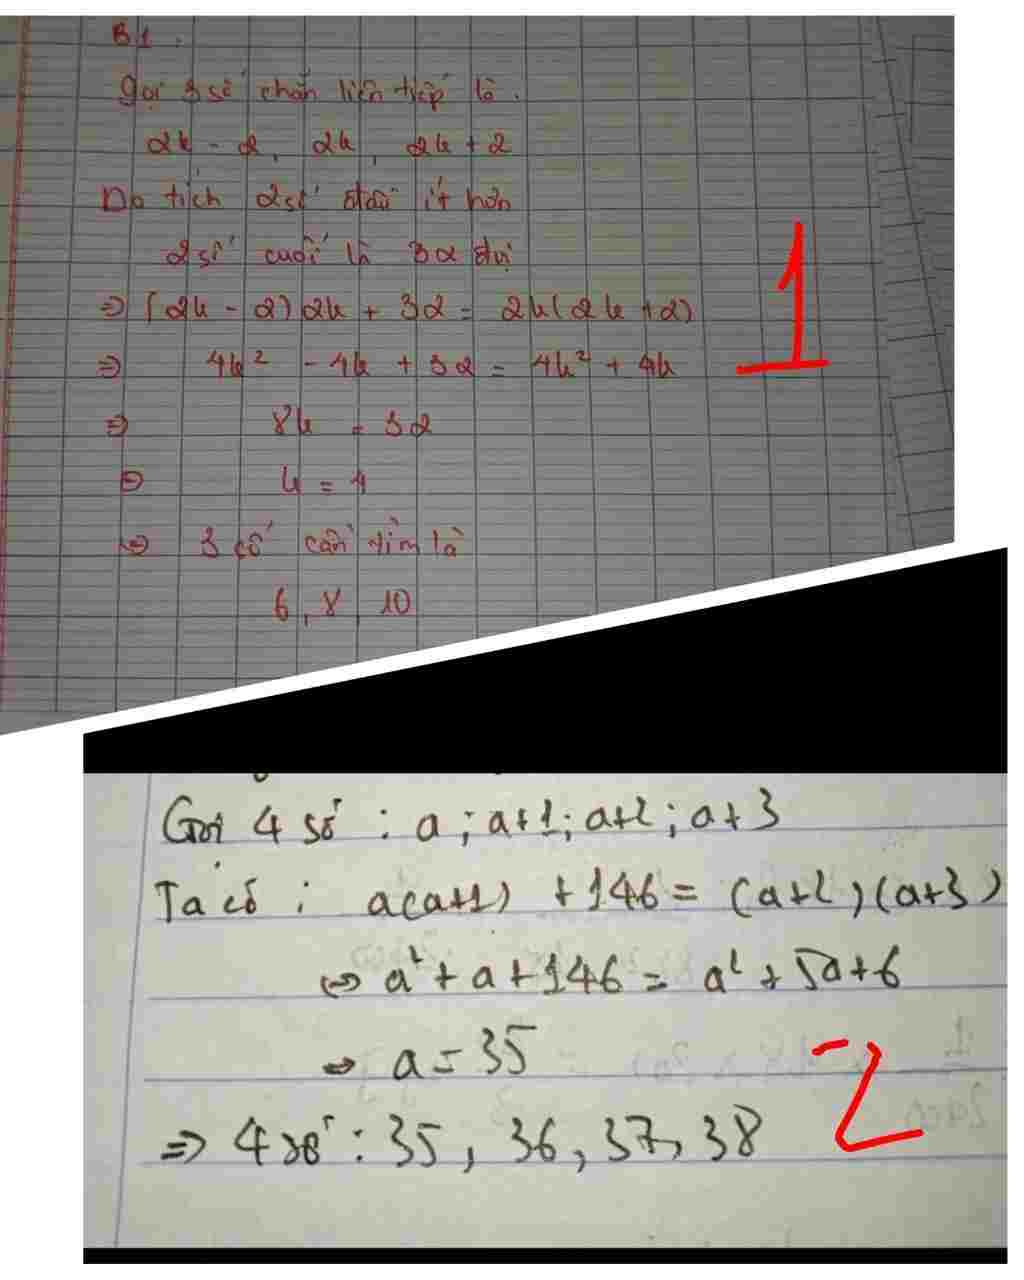 B1.
Gọi 3 số chẵn liên tiếp là.
2k - 2, 2k, 2k + 2
Do tích 2 số đầu ít hơn
2 số cuối là 32 đvị
=> (2k - 2) 2k + 32 = 2k(2k + 2)
=> 4k² - 4k + 32 = 4k² + 4k
=> 8k = 32
=> k = 4
=> 3 số cần tìm là
6, 8, 10
1
Gọi 4 số : a ; a+1 ; a+2 ; a+3
Ta có : a(a+1) + 146 = (a+2)(a+3)
<=> a² + a + 146 = a² + 5a + 6
=> a = 35
=> 4 số : 35, 36, 37, 38
2